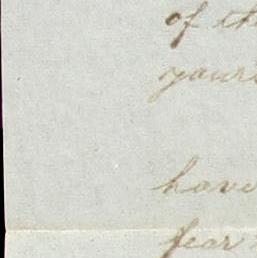 of th
your
have
fear